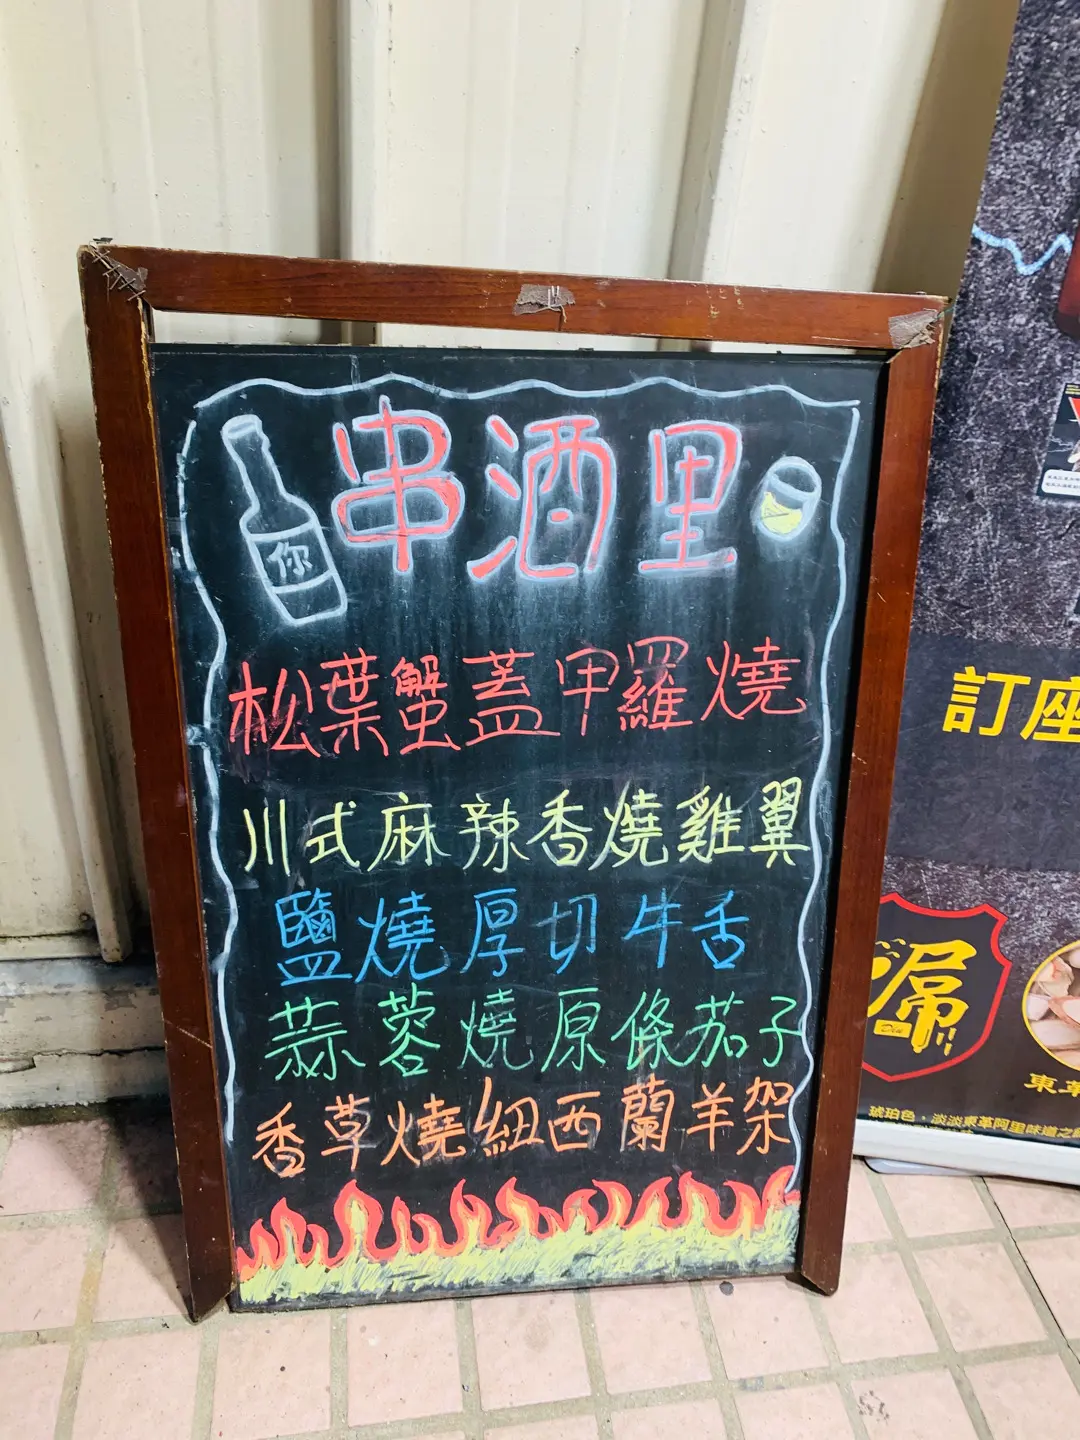 串酒里
你
松葉蟹蓋甲羅燒
川式麻辣香燒雞翼
鹽燒厚切牛舌
蒜蓉燒原條茄子
香草燒紐西蘭羊架
訂座
屌
Diu
東革
琥珀色，淡淡東革阿里味道之